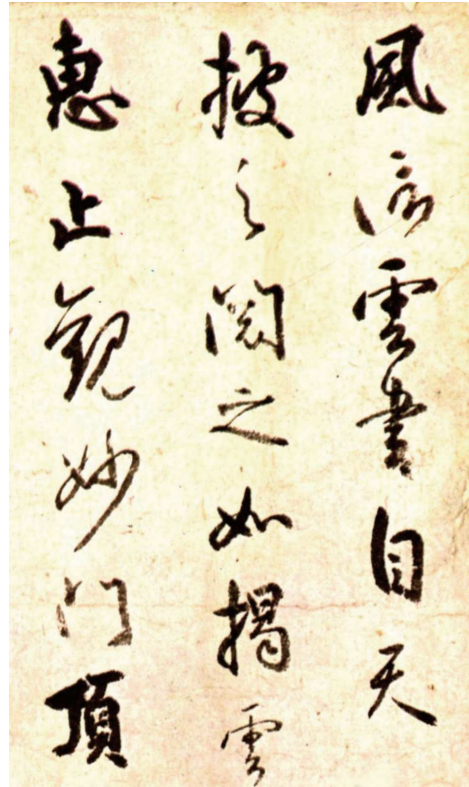 風信雲書自天
披之閱之如揭雲
惠止觀妙門頂